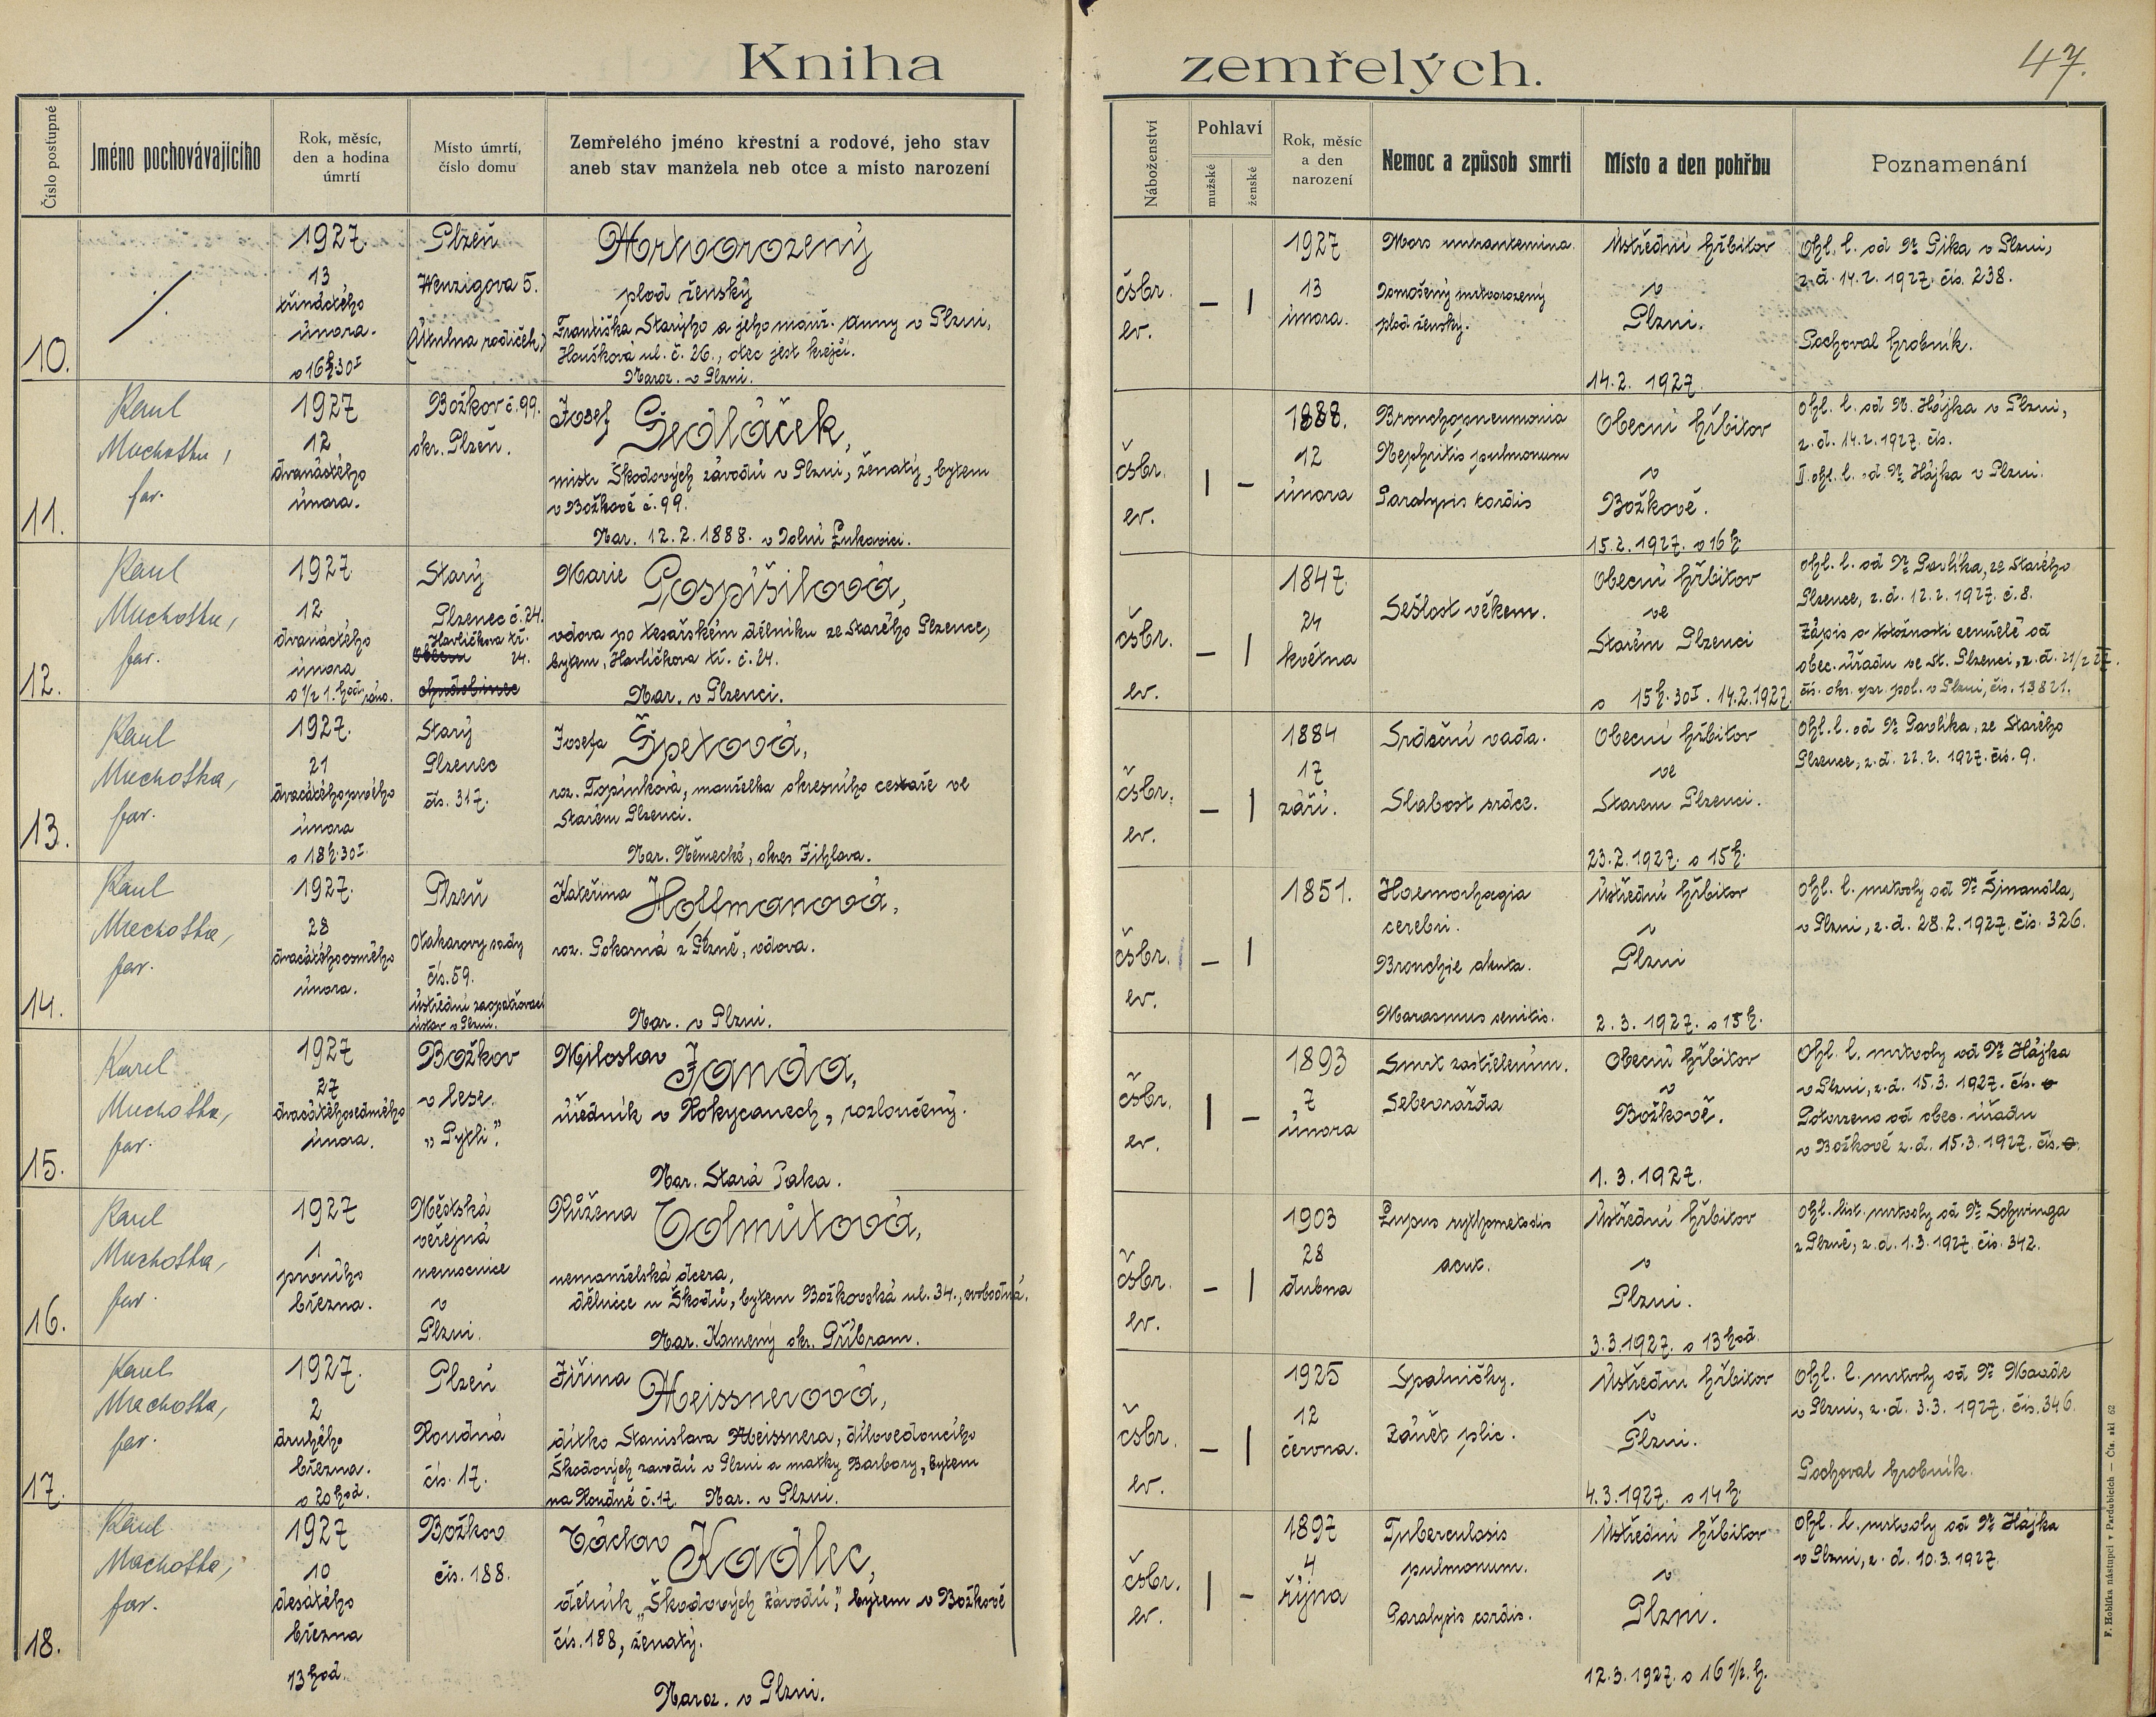 Kniha zemřelých.
47.
Číslo postupné
Jméno pochovávajícího
Rok, měsíc,
den a hodina
úmrtí
Místo úmrtí,
číslo domu
Zemřelého jméno křestní a rodové, jeho stav
aneb stav manžela neb otce a místo narození
Náboženství
Pohlaví
mužské
ženské
Rok, měsíc
a den
narození
Nemoc a způsob smrti
Místo a den pohřbu
Poznamenání
10.
1927.
13
třináctého
února.
o 16h.30I
Plzeň
Wenzigova 5.
(Útulna rodiček)
Mrtvorozený
plod ženský
Františka Starýho a jeho manž. Anny v Plzni,
Houškova ul. č. 26., otec jest krejčí.
Naroz. v Plzni.
čsbr.
ev.
– |
1927
13
února.
Mors intrauterina.
Donošený mrtvorozený
plod ženský.
Ústřední hřbitov
v
Plzni.
14.2. 1927.
Ohl. l. od Dr Pika v Plzni,
z d. 14.2. 1927. čís. 238.
Pochoval hrobník.
11.
Karel
Machotka,
far.
1927
12
dvanáctého
února.
Božkov č. 99.
okr. Plzeň.
Josef Sedláček,
mistr Škodových závodů v Plzni, ženatý, bytem
v Božkově č. 99.
Nar. 12.2.1888. v Dolní Lukavici.
čsbr.
ev.
| –
1888.
12
února
Bronchopneumonia
Nephritis pulmonum
Paralysis cordis
Obecní hřbitov
v
Božkově.
15.2.1927. o 16 h.
Ohl. l. od Dr. Hájka v Plzni,
z. d. 14.2.1927. čís.
II. ohl. l. od Dr Hájka v Plzni.
12.
Karel
Machotka,
far.
1927.
12
dvanáctého
února
o 1/2 1. hod. ráno.
Starý
Plzenec č. 24.
Havlíčkova tř.
24.
Marie Pospíšilová,
vdova po tesařském dělníku ze Starého Plzence,
bytem, Havlíčkova tř. č. 24.
Nar. v Plzenci.
čsbr.
ev.
– |
1847.
24
května
Sešlost věkem.
Obecní hřbitov
ve
Starém Plzenci
o 15h.30I. 14.2.1927.
Ohl. l. od Dr Pavlíka, ze Starého
Plzence, z. d. 12.2. 1927. č. 8.
Zápis o totožnosti zemřelé od
obec. úřadu ve St. Plzenci, z. d. 21/2 27.
čís. okr. spr. pol. v Plzni, čís. 13821.
13.
Karel
Machotka,
far.
1927.
21
dvacátéhoprvého
února
o 18h.30I.
Starý
Plzenec
čís. 317.
Josefa Špetová,
roz. Topinková, manželka okresního cestaře ve
Starém Plzenci.
Nar. Německé, okres Jihlava.
čsbr.
ev.
– |
1884
17
září.
Srdeční vada.
Slabost srdce.
Obecní hřbitov
ve
Starém Plzenci.
23.2.1927. o 15 h.
Ohl. l. od Dr Pavlíka, ze Starého
Plzence, z. d. 22.2. 1927. čís. 9.
14.
Karel
Machotka,
far.
1927.
28
dvacátéhoosmého
února.
Plzeň
Otakarovy sady
čís. 59.
Ústřední zaopatřovací
ústav v Plzni.
Kateřina Hoffmanová,
roz. Pokorná z Plzně, vdova.
Nar. v Plzni.
čsbr.
ev.
– |
1851.
Haemorhagia
cerebri.
Bronchie akuta.
Marasmus senilis.
Ústřední hřbitov
v
Plzni
2.3.1927. o 15 h.
Ohl. l. mrtvoly od Dr Šimandla,
v Plzni, z. d. 28.2.1927. čís. 326.
15.
Karel
Machotka,
far.
1927
27
dvacátéhosedmého
února.
Božkov
v lese
„Pytli".
Miloslav Janda,
úředník v Rokycanech, rozloučený.
Nar. Stará Paka.
čsbr.
ev.
| –
1893
7
února
Smrt zastřelením.
Sebevražda
Obecní hřbitov
v
Božkově.
1.3.1927.
Ohl. l. mrtvoly od Dr Hájka
v Plzni, z. d. 15.3. 1927. čís.
Potvrzeno od obec. úřadu
v Božkově z. d. 15.3.1927. čís.
16.
Karel
Machotka,
far.
1927
1
prvního
března.
Městská
veřejná
nemocnice
v
Plzni.
Růžena
nemanželská dcera,
dělnice u Škodů, bytem Božkovská ul. 34., svobodná.
Nar. Kamený okr. Příbram.
čsbr.
ev.
– |
1903
28
dubna
acut.
Ústřední hřbitov
v
Plzni.
3.3.1927. o 13 hod.
Ohl. list. mrtvoly od Dr Schwinga
z Plzně, z. d. 1.3.1927. čís. 342.
17.
Karel
Machotka,
far.
1927.
2
druhého
března.
o 20 hod.
Plzeň
Roudná
čís. 17.
Jiřina Meissnerová,
dítko Stanislava Meissnera, dílovedoucího
Škodových zavodů v Plzni a matky Barbory, bytem
na Roudné č. 17. Nar. v Plzni.
čsbr.
ev.
– |
1925
12
června.
Spalničky.
Zánět plic.
Ústřední hřbitov
v
Plzni.
4.3.1927. o 14 h
Ohl. l. mrtvoly od Dr
v Plzni, z. d. 3.3. 1927. čís. 346.
Pochoval hrobník.
18.
Karel
Machotka,
far.
1927
10
desátého
března
13 hod.
Božkov
čís. 188.
Václav Kadlec,
dělník „Škodových Závodů", bytem v Božkově
čís. 188, ženatý.
Naroz. v Plzni.
čsbr.
ev.
| –
1897
4
října
Tuberculosis
pulmonum.
Paralysis cordis.
Ústřední hřbitov
v
Plzni.
12.3.1927. o 16 1/2. h.
Ohl. l. mrtvoly od Dr Hájka
v Plzni, z. d. 10.3.1927.
F. Hoblíka nástupci v Pardubicích — Čís. skl. 62